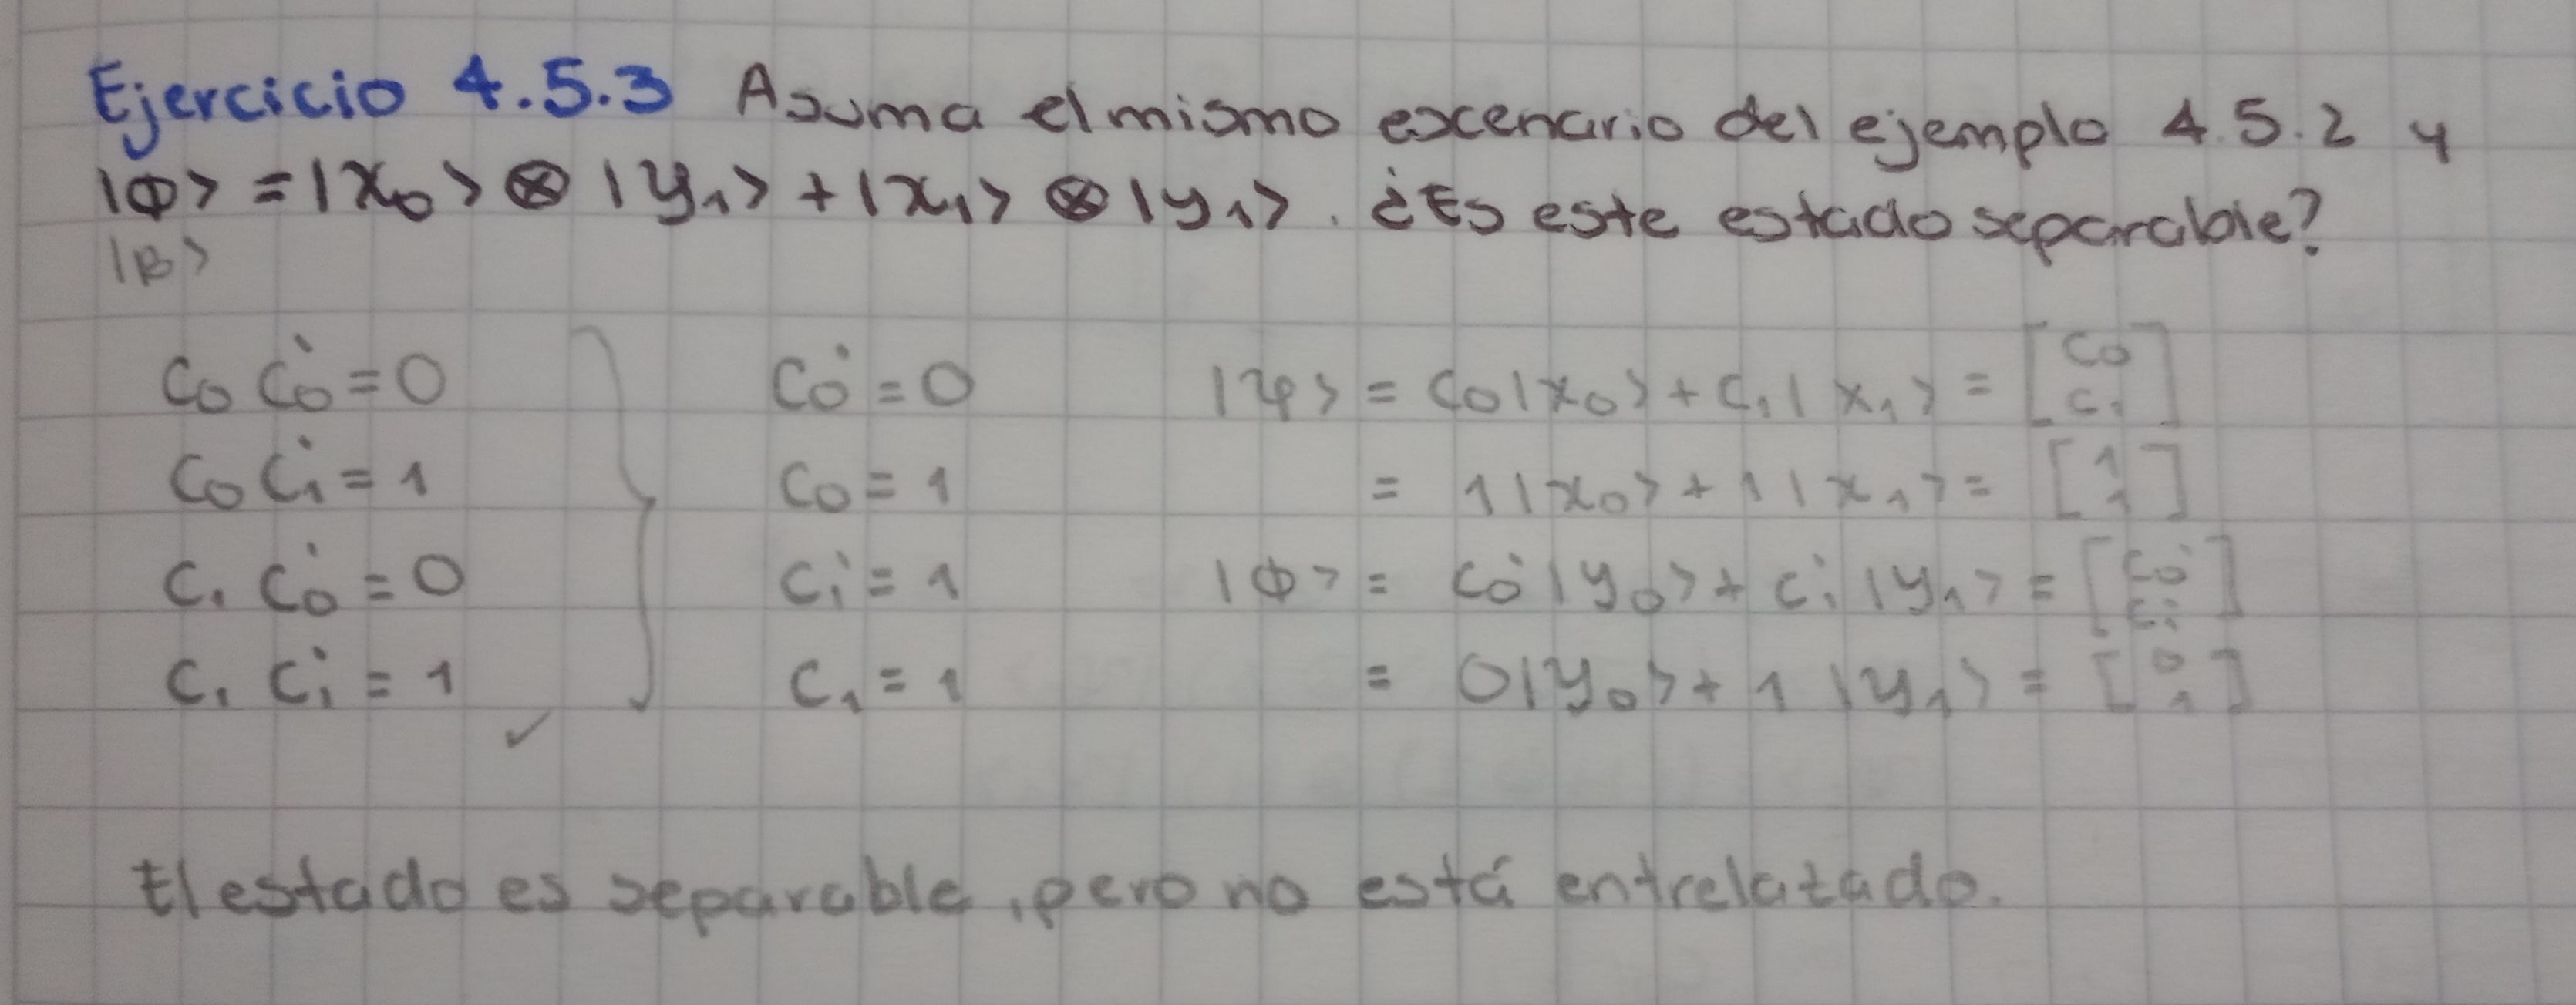 Ejercicio 4.5.3 Asuma el mismo escenario del ejemplo 4.5.2 y
|φ> = |x₀> ⊗ |y₁> + |x₁> ⊗ |y₁>. ¿Es este estado separable?
|β>
c₀ c₀' = 0 c₀' = 0 |ψ> = c₀|x₀> + c₁|x₁> = [c₀ c₁]
c₀ c₁' = 1 c₀ = 1 = 1|x₀> + 1|x₁> = [1 1]
c₁ c₀' = 0 c₁' = 1 |φ> = c₀'|y₀> + c₁'|y₁> = [c₀' c₁']
c₁ c₁' = 1 ✓ c₁ = 1 = 0|y₀> + 1|y₁> = [0 1]
El estado es separable, pero no está entrelazado.